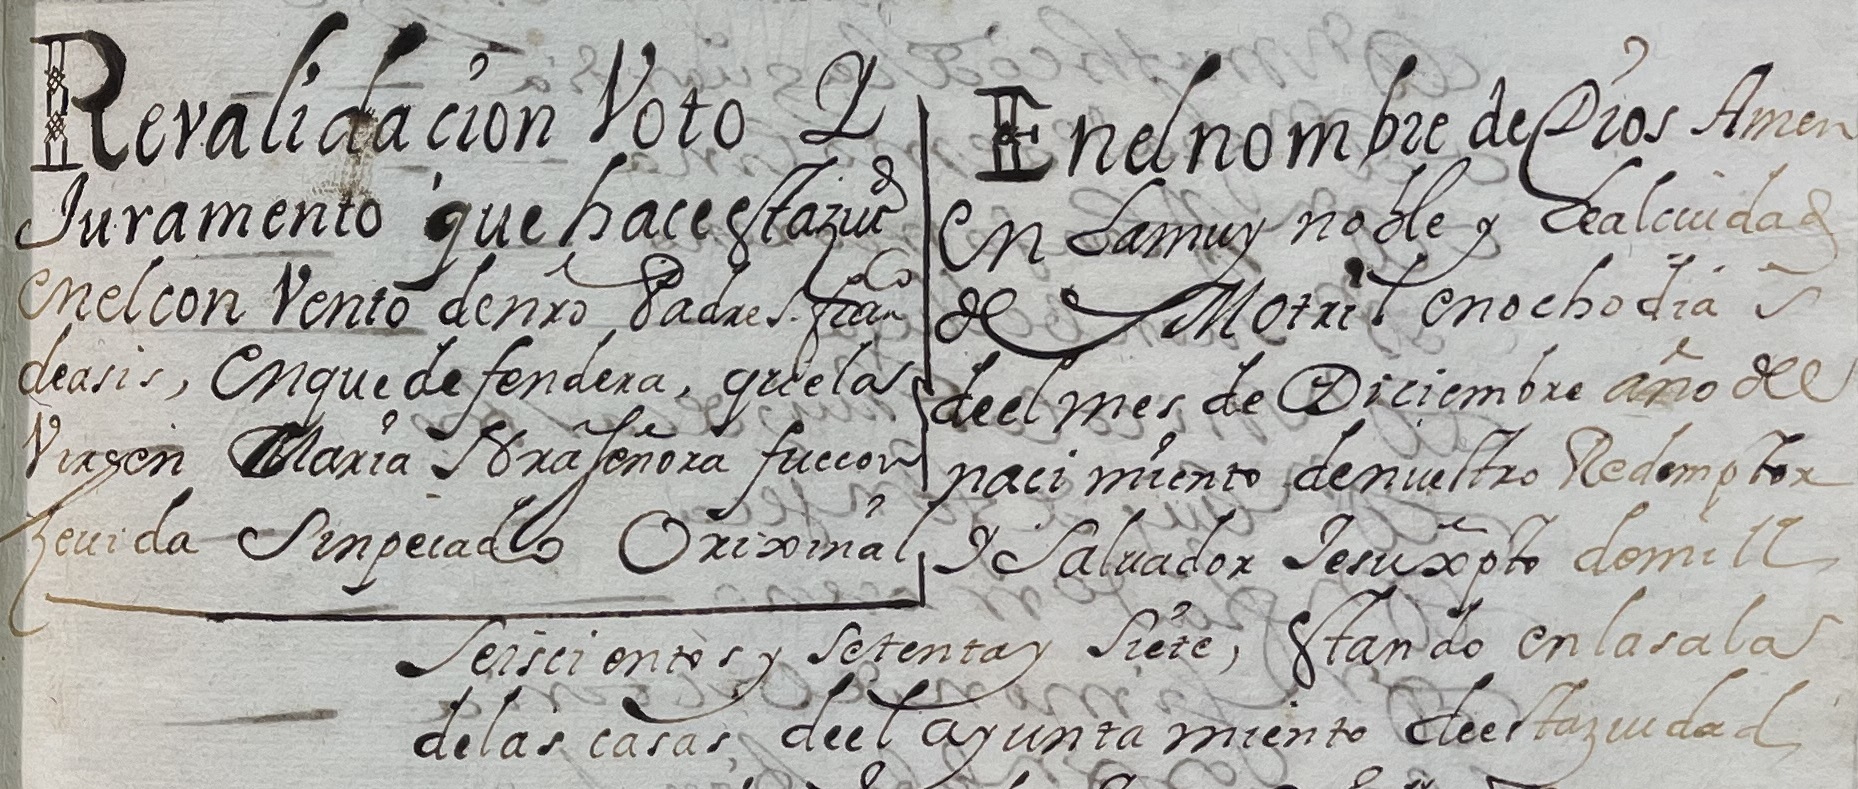 Revalidacion Voto Y
Juramento que hace estaziud
enelcon Vento denro Padre S. fran^co
deasis, Enque defendera, quela
Virgen Maria Nra señora fuecon
zeuida Sinpecado Oriximal
Enelnombre de Dios Amen
En Lamuy noble y Lealciudad
de Motril enochodia s
deel mes de Diciembre año del
nacimiento denuestro Redemptor
Y Saluador Jesuxpto demill
Seiscientos y setentay Siete, Estando enlasala
delas casas, deel ayuntamiento deestaziudad